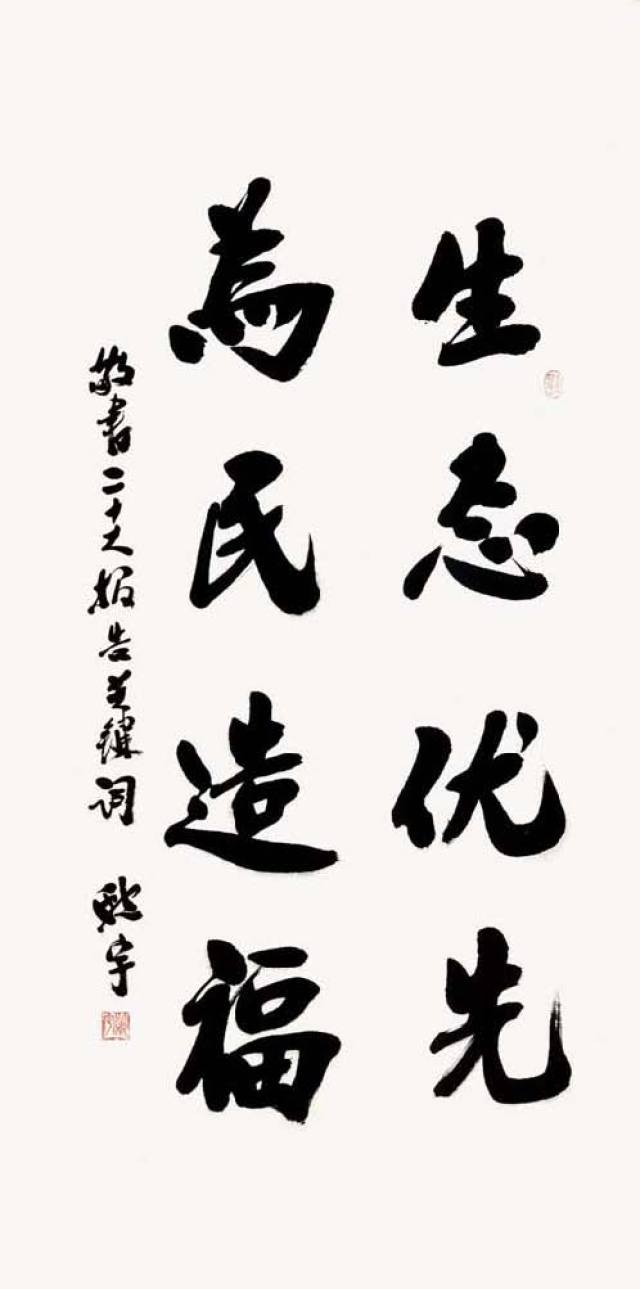 生态优先
為民造福
敬書二十大报告关键词